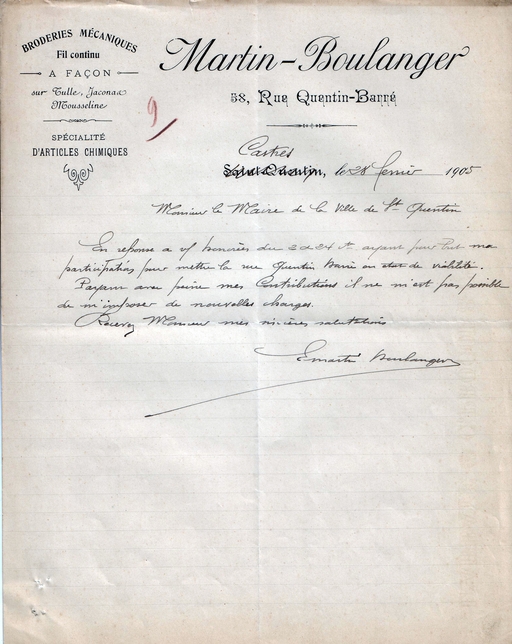 BRODERIES MÉCANIQUES
Fil continu
A FAÇON
sur Tulle, Jaconas
Mousseline
SPÉCIALITÉ
D'ARTICLES CHIMIQUES
Martin-Boulanger
58, Rue Quentin-Barré
9
Castres
Saint-Quentin, le 28 février 1905
Monsieur le Maire de la Ville de St Quentin
En réponse a vos honorées du 2 et 24 ct. ayant pour but ma
participation pour mettre la rue Quentin Barré en état de viabilité.
Payant avec peine mes Contributions il ne m'est pas possible
de m'imposer de nouvelles charges.
Recevez Monsieur mes sincères salutations
E Martin Boulanger